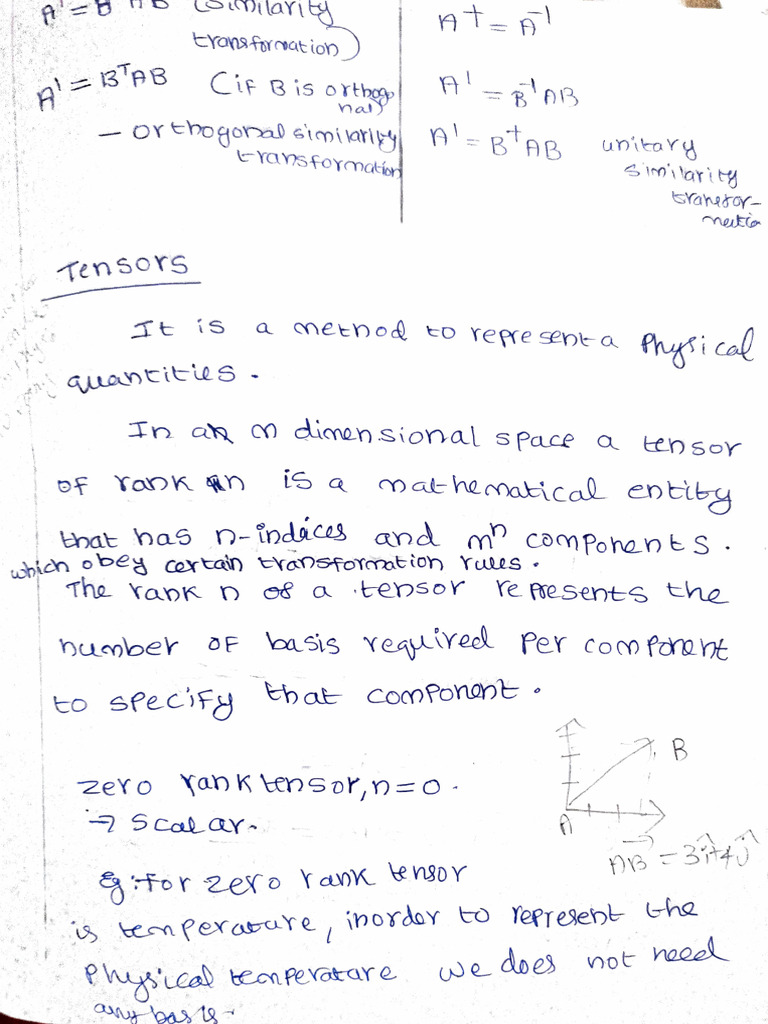 A' = B⁻¹AB (similarity
transformation)
A' = BᵀAB (if B is orthogo
nal)
— orthogonal similarity
transformation
A† = A⁻¹
A' = B⁻¹AB
A' = B†AB unitary
similarity
transfor-
matio
Tensors
It is a method to represent a physical
quantities.
In an m dimensional space a tensor
of rank n is a mathematical entity
that has n-indices and mⁿ components.
which obey certain transformation rules.
The rank n of a tensor represents the
number of basis required per component
to specify that component.
zero rank tensor, n=0.
→ scalar.
B
A
AB = 3î+4ĵ
eg: for zero rank tensor
is temperature, inorder to represent the
physical temperature we does not need
any basis.